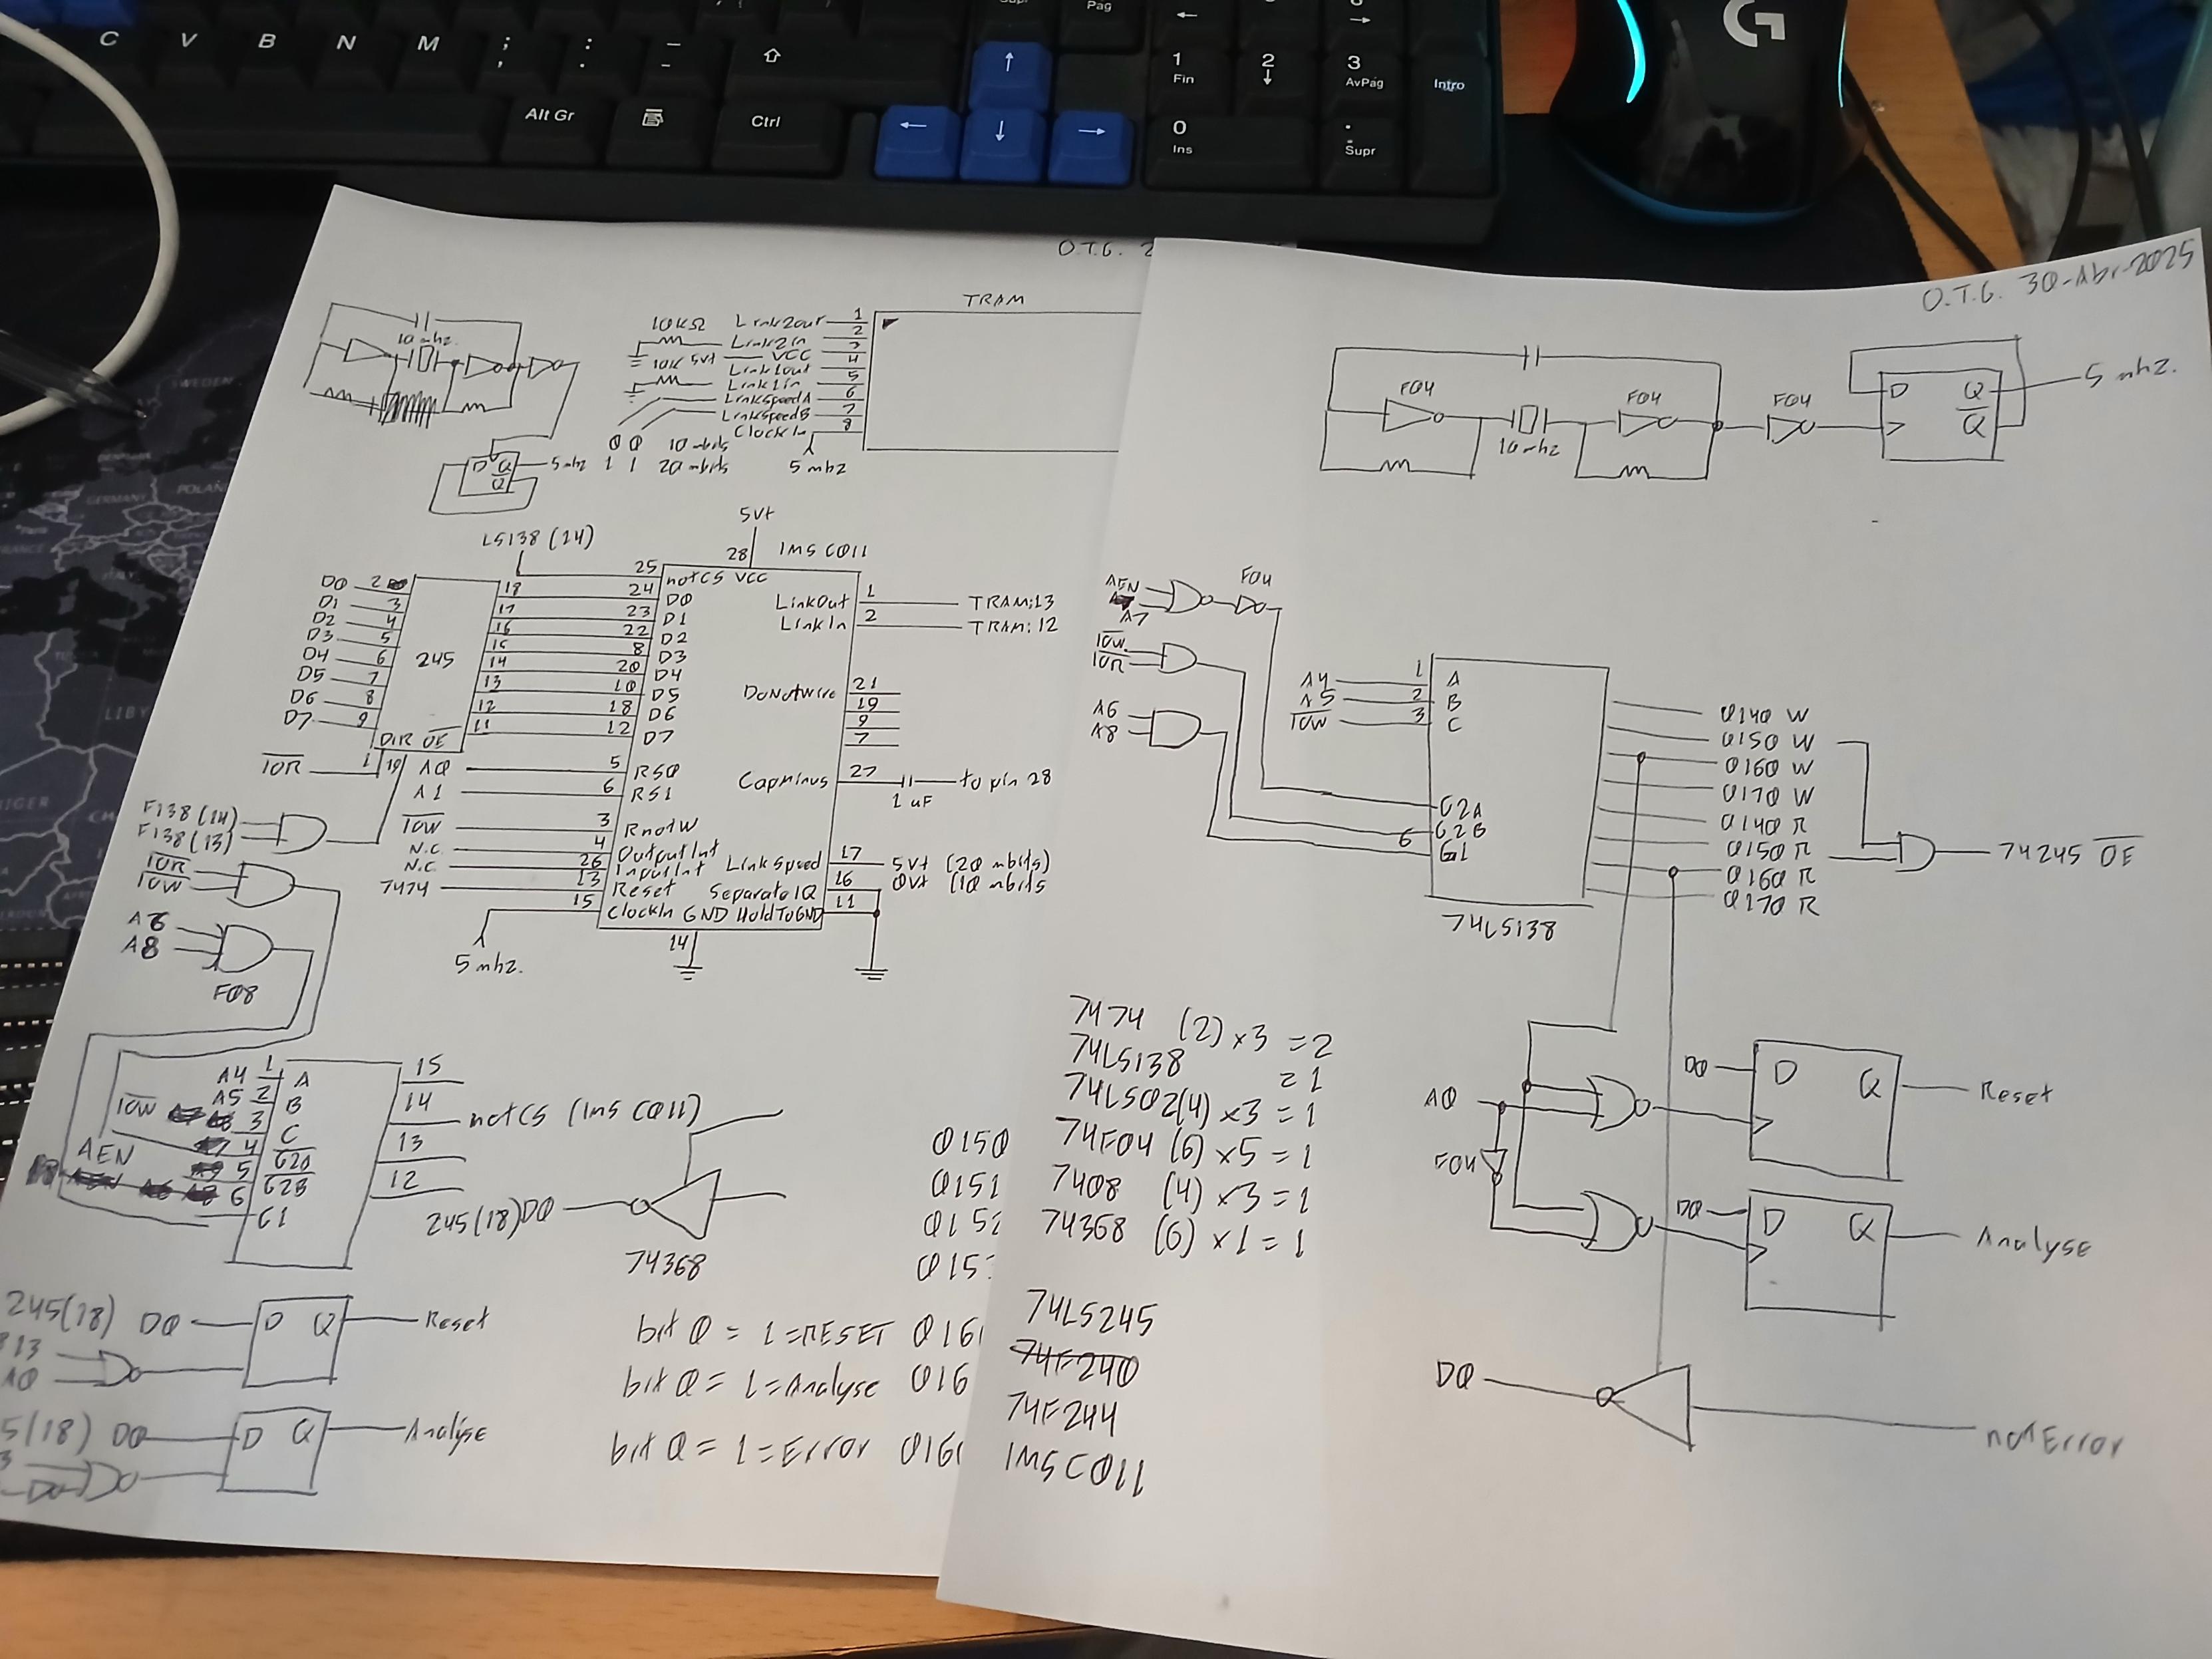 C V B N M ; : _
, . -
Supr
Pag
1 Fin
2
3 AvPag
Intro
Alt Gr
Ctrl
0 Ins
. Supr
G
SWEDEN
GERMANY
POLAND
FRANCE
ITALY
LIBY
NIGER
O.T.G. 2
TRAM
10 mhz.
10KΩ Link2out 1
2
Link2in 3
10K 5vt VCC 4
Link1out 5
Link1in 6
LinkSpeedA 7
LinkSpeedB 8
ClockIn
0 0 10 mbits
1 1 20 mbits
5 mhz
D Q 5mhz
Q̅
LS138 (14)
5vt
28
IMS C011
D0 2
D1 3
D2 4
D3 5
D4 6
D5 7
D6 8
D7 9
245
DIR O̅E̅
1 19
18
17
16
15
14
13
12
11
I̅O̅R̅
25 notCS VCC
24 D0
23 D1
22 D2
8 D3
20 D4
10 D5
18 D6
12 D7
A0 5 RS0
A1 6 RS1
I̅O̅W̅ 3 RnotW
N.C. 4 OutputInt
N.C. 26 InputInt
7474 13 Reset
15 ClockIn GND HoldToGND
LinkOut 1 TRAM:13
LinkIn 2 TRAM:12
DoNotWire 21
19
9
7
CapMinus 27 to pin 28
1 uF
LinkSpeed 17 5vt (20 mbits)
0vt (10 mbits
SeparateIQ 16
11
14
5 mhz.
F138 (14)
F138 (13)
I̅O̅R̅
I̅O̅W̅
A6
A8
F08
A4 1 A
A5 2 B
I̅O̅W̅ 3 C
4 G̅2̅A̅
AEN 5 G̅2̅B̅
6 G1
15
14 notCS (IMS C011)
13
12
245(18) D0
74368
0150
0151
0152
015
245(18) D0 D Q Reset
13
A0
5(18) D0 D Q Analyse
bit 0 = 1 = RESET 016
bit 0 = 1 = Analyse 016
bit 0 = 1 = Error 016
O.T.G. 30-Abr-2025
F04
10 mhz
F04
F04
D Q 5 mhz.
Q̅
AEN
A7
F04
I̅O̅W̅
I̅O̅R̅
A6
A8
A4 1 A
A5 2 B
I̅O̅W̅ 3 C
G2A
G2B
6 G1
74LS138
0140 W
0150 W
0160 W
0170 W
0140 R
0150 R
0160 R
0170 R
74245 O̅E̅
7474 (2) x3 = 2
74LS138 = 1
74LS02(4) x3 = 1
74F04 (6) x5 = 1
7408 (4) x3 = 1
74368 (6) x1 = 1
74LS245
74F240
74F244
IMSC011
A0
F04
D0 D Q Reset
D0 D Q Analyse
D0
notError